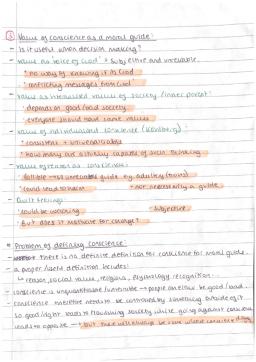 ③ Value of conscience as a moral guide:
- Is it useful when decision making?
- value as 'voice of God' = subjective and unreliable.
· no way of knowing if its God
· conflicting messages from God
- value as internalised values of society / inner parent:
· depends on good/bad society
· everyone should have same values
- value of individualised conscience (Kohlberg)
· consistent + universalisable
· how many are actually capable of such thinking
- value of reason as conscience:
· fallible → unreliable guide e.g. adultery
· could lead to harm · not necessarily a guide
- Guilt feelings:
· could be wrong · subjective
· But does it motivate for change?
• Problem of defining conscience:
- there is no definite definition for conscience for moral guide.
- a proper definition includes:
↳ reason, social value, religious, psychology, recognition...
- conscience is unquantifiable → people can allow be good / bad.
- conscience therefore needs to be constrained by something outside of it
so good/right leads to flourishing society while going against conscience
leads to opposite → but there will always be some where